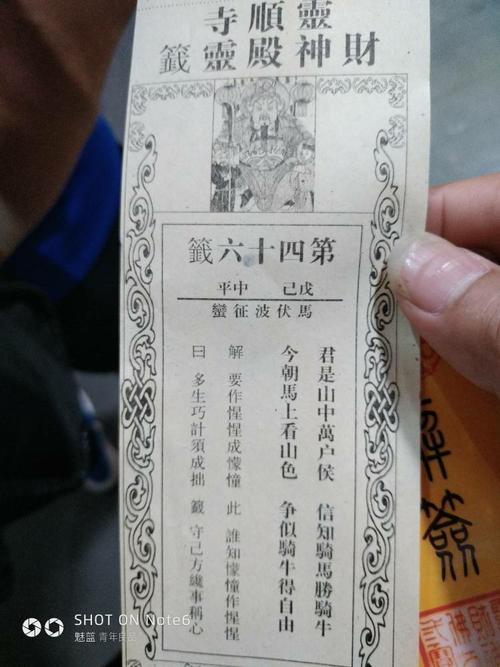 靈順寺
財神殿靈籤
第四十六籤
戊己 中平
馬伏波征蠻
君是山中萬户侯 信知騎馬勝騎牛
今朝馬上看山色 争似騎牛得自由
解 要作惺惺成懞憧 此 誰知懞憧作惺惺
曰 多生巧計須成拙 籤 守己方纔事稱心
SHOT ON Note6
魅蓝 青年良品